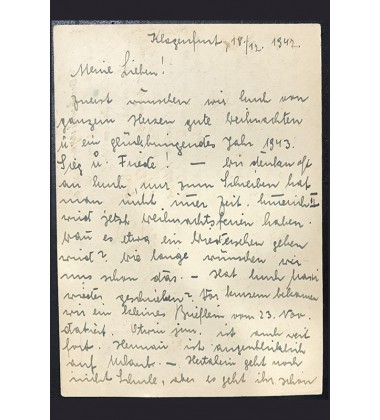 Klagenfurt, 18/12. 1942.
Meine Lieben!
Zuerst wünschen wir Euch von
ganzem Herzen gute Weihnachten
u. ein glückbringendes Jahr 1943.
Sieg u. Friede! — Wir denken oft
an Euch, nur zum Schreiben hat
man nicht immer Zeit.
wird jetzt Weihnachtsferien haben.
Wann es etwa ein Wiedersehen geben
wird? Wie lange wünschen wir
uns schon das. — Hat Euch
wieder geschrieben? Vor kurzem bekamen
wir ein kleines Brieflein vom 23. Nov.
datiert. Otwin jun. ist auch weit
fort. Hermann ist augenblicklich
auf Urlaub. — geht noch
nicht Schule, aber es geht ihr schon